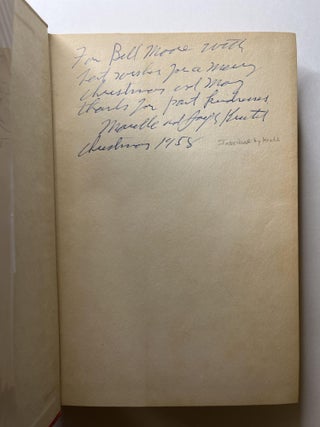 For Bill Moore with
best wishes for a merry
christmas and many
thanks for past kindnesses
and
Christmas 1958
Inscribed by